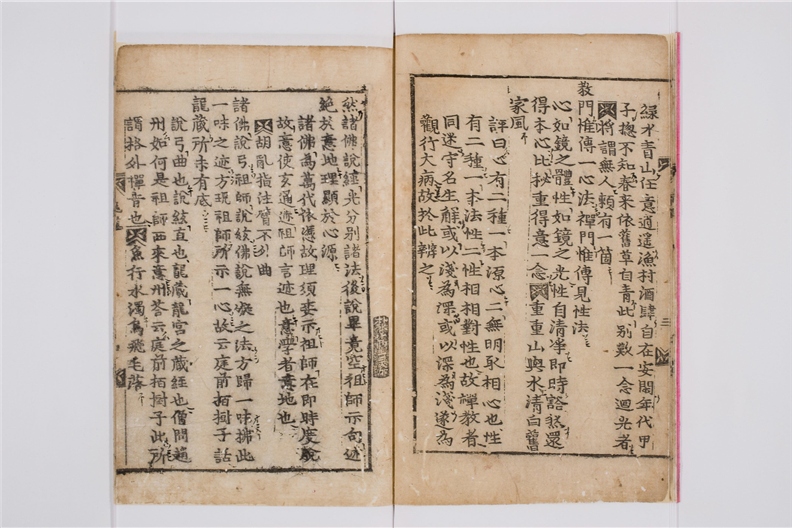 綠水青山任意逍遙漁村酒肆自在安閑年代甲
子摠不知春來依舊草自青此別歎一念迴光者
將謂無人賴有一箇
教門惟傳一心法禪門惟傳見性法
心如鏡之體性如鏡之光性自清淨即時豁然還
得本心比秘重得意一念 重重山與水清白舊
家風
評曰心有二種一本源心二無明取相心也性
有二種一本法性二性相相對性也故禪教者
同迷守名生解或以淺為深或以深為淺遂為
觀行大病故於此辨之
然諸佛說經先分別諸法後說畢竟空祖師示句迹
絕於意地理顯於心源
諸佛為萬代依憑故理須委示祖師在即時度脫
故意使玄通迹祖師言迹也意學者意地也
胡亂指注臂不外曲
諸佛說弓祖師說絃佛說無礙之法方歸一味拂此
一味之迹方現祖師所示一心故云庭前栢樹子話
龍藏所未有底
說弓曲也說絃直也龍藏龍宮之藏經也僧問趙
州如何是祖師西來意州答云庭前栢樹子此所
謂格外禪旨也 魚行水濁鳥飛毛落